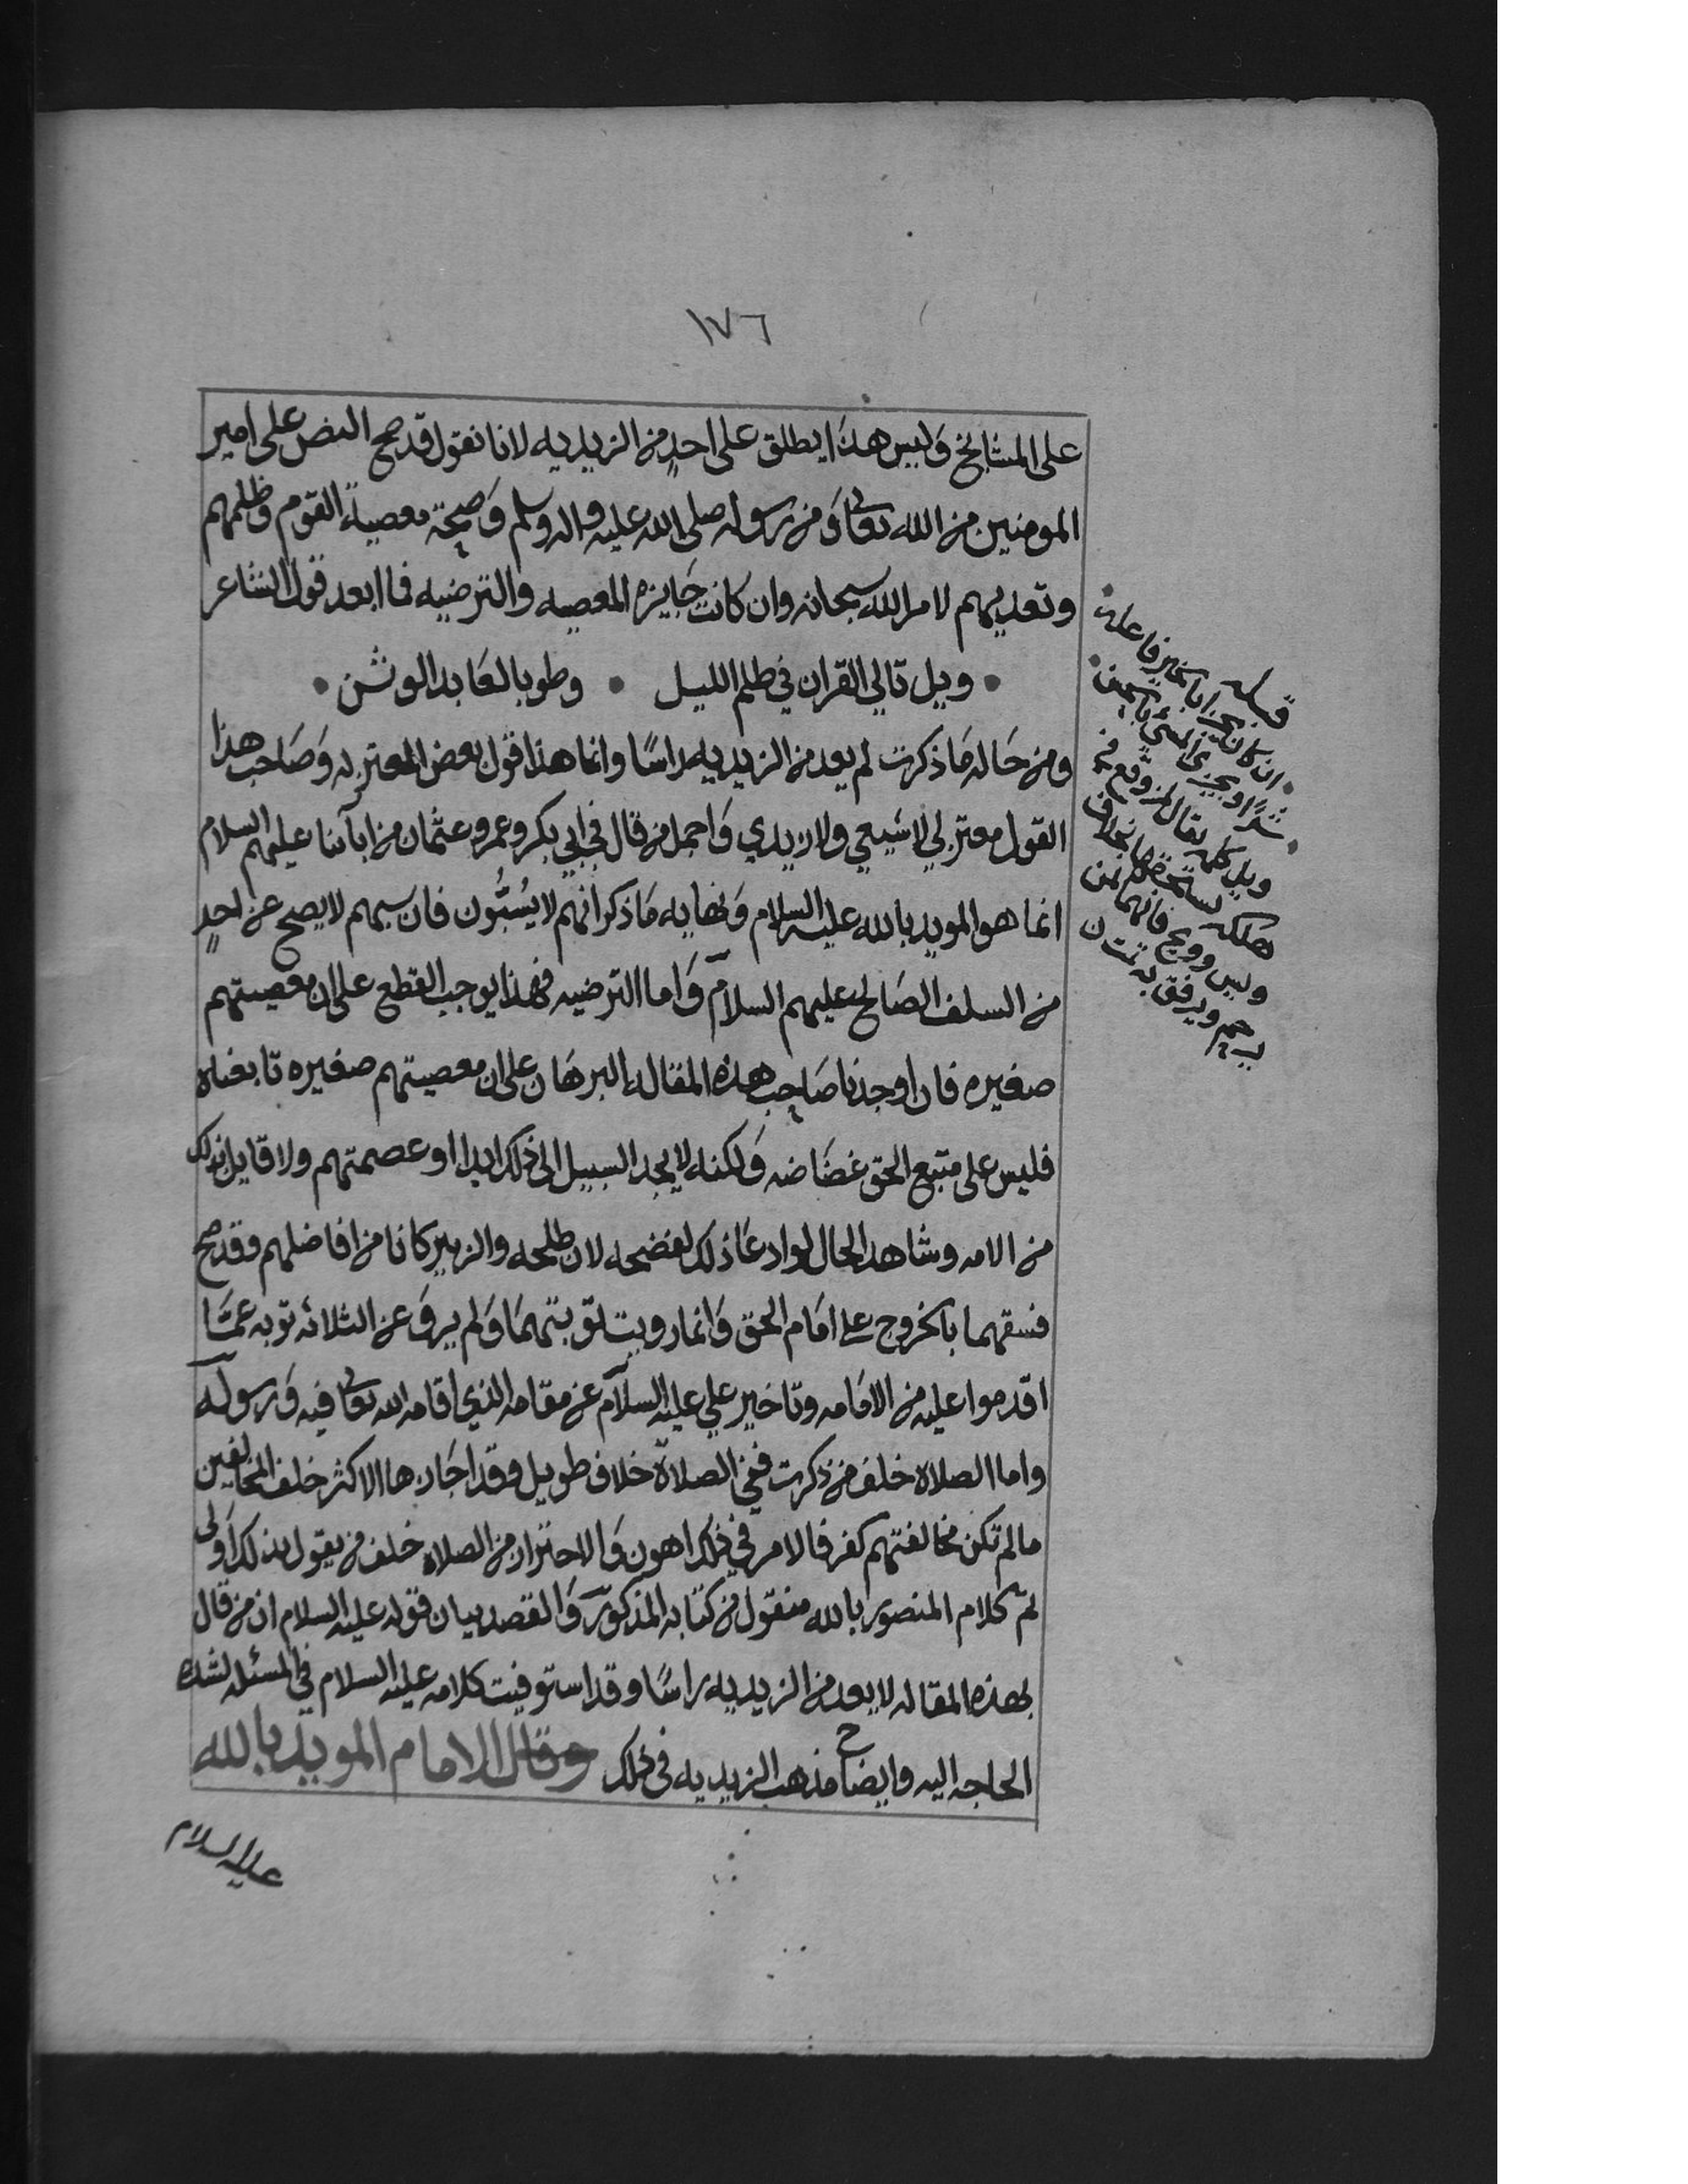 ١٧٦
على المشايخ وليس هذا يطلق على احدٍ من الزيديه لانا نقول قد صح النص على امير
المومنين من الله تعالى ومن رسوله صلى الله عليه واله وسلم وصحة معصية القوم وظلمهم
وتعديهم لامر الله سبحانه وان كانت جايزه المعصيه والترضيه فما ابعد قول الشاعر
ويل تالي القران في ظلم الليل • وطوبا لعابد الوثن •
ومن حاله ما ذكرت لم يعد من الزيديه راسًا وانما هذا قول بعض المعتزله وصاحب هذا
القول معتزلي لا شيعي ولا زيدي واجمل من قال في ابي بكر وعمر وعثمان من ابآئنا عليهم السلام
انما هو المويد بالله عليه السلام ونهايه ما ذكر انهم لا يُسَبُّون فان سبهم لا يصح عن احدٍ
من السلف الصالح عليهم السلام واما الترضيه فهذا يوجب القطع على ان معصيتهم
صغيره فان اوجدنا صاحب هذه المقالة البرهان على ان معصيتهم صغيره تابعناه
فليس على متبع الحق غضاضه ولكنه لا يجد السبيل الى ذلك ابدا او عصمتهم ولا قايل بذلك
من الامه وشاهد الحال لو ادعا ذلك لفضحه لان طلحه والزبير كانا من افاضلهم وقد صح
فسقهما بالخروج على امام الحق وانما رويت توبتهما ولم يرو عن الثلاثه توبه عمّا
اقدموا عليه من الامامه وتاخير علي عليه السلام عن مقامه الذي اقامه الله تعالى فيه ورسوله
واما الصلاه خلف من ذكرت ففي الصلاة خلاف طويل وقد اجازها الاكثر خلف المخالفين
مالم تكن مخالفتهم كفر فالامر في ذلك اهون والاحتراز من الصلاه خلف من يقول بذلك اولى
تم كلام المنصور بالله منقول من كتابه المذكور والقصد بيان قوله عليه السلام ان من قال
بهذه المقاله لا يعد من الزيديه راسًا وقد استوفيت كلامه عليه السلام في المسئله لشده
الحاجه اليه وايضاح مذهب الزيديه في ذلك وقال الامام المويد بالله
عليه السلام
قبله
ان كان يجزا بالخير فاعله
شرًا ويجزى المسئ بالحسن
ويل كلمه يقال لمن وقع في
هلكه يستحقها بخلاف
ويس وويح فانهما لمن
يرحم ويرفق به تمت